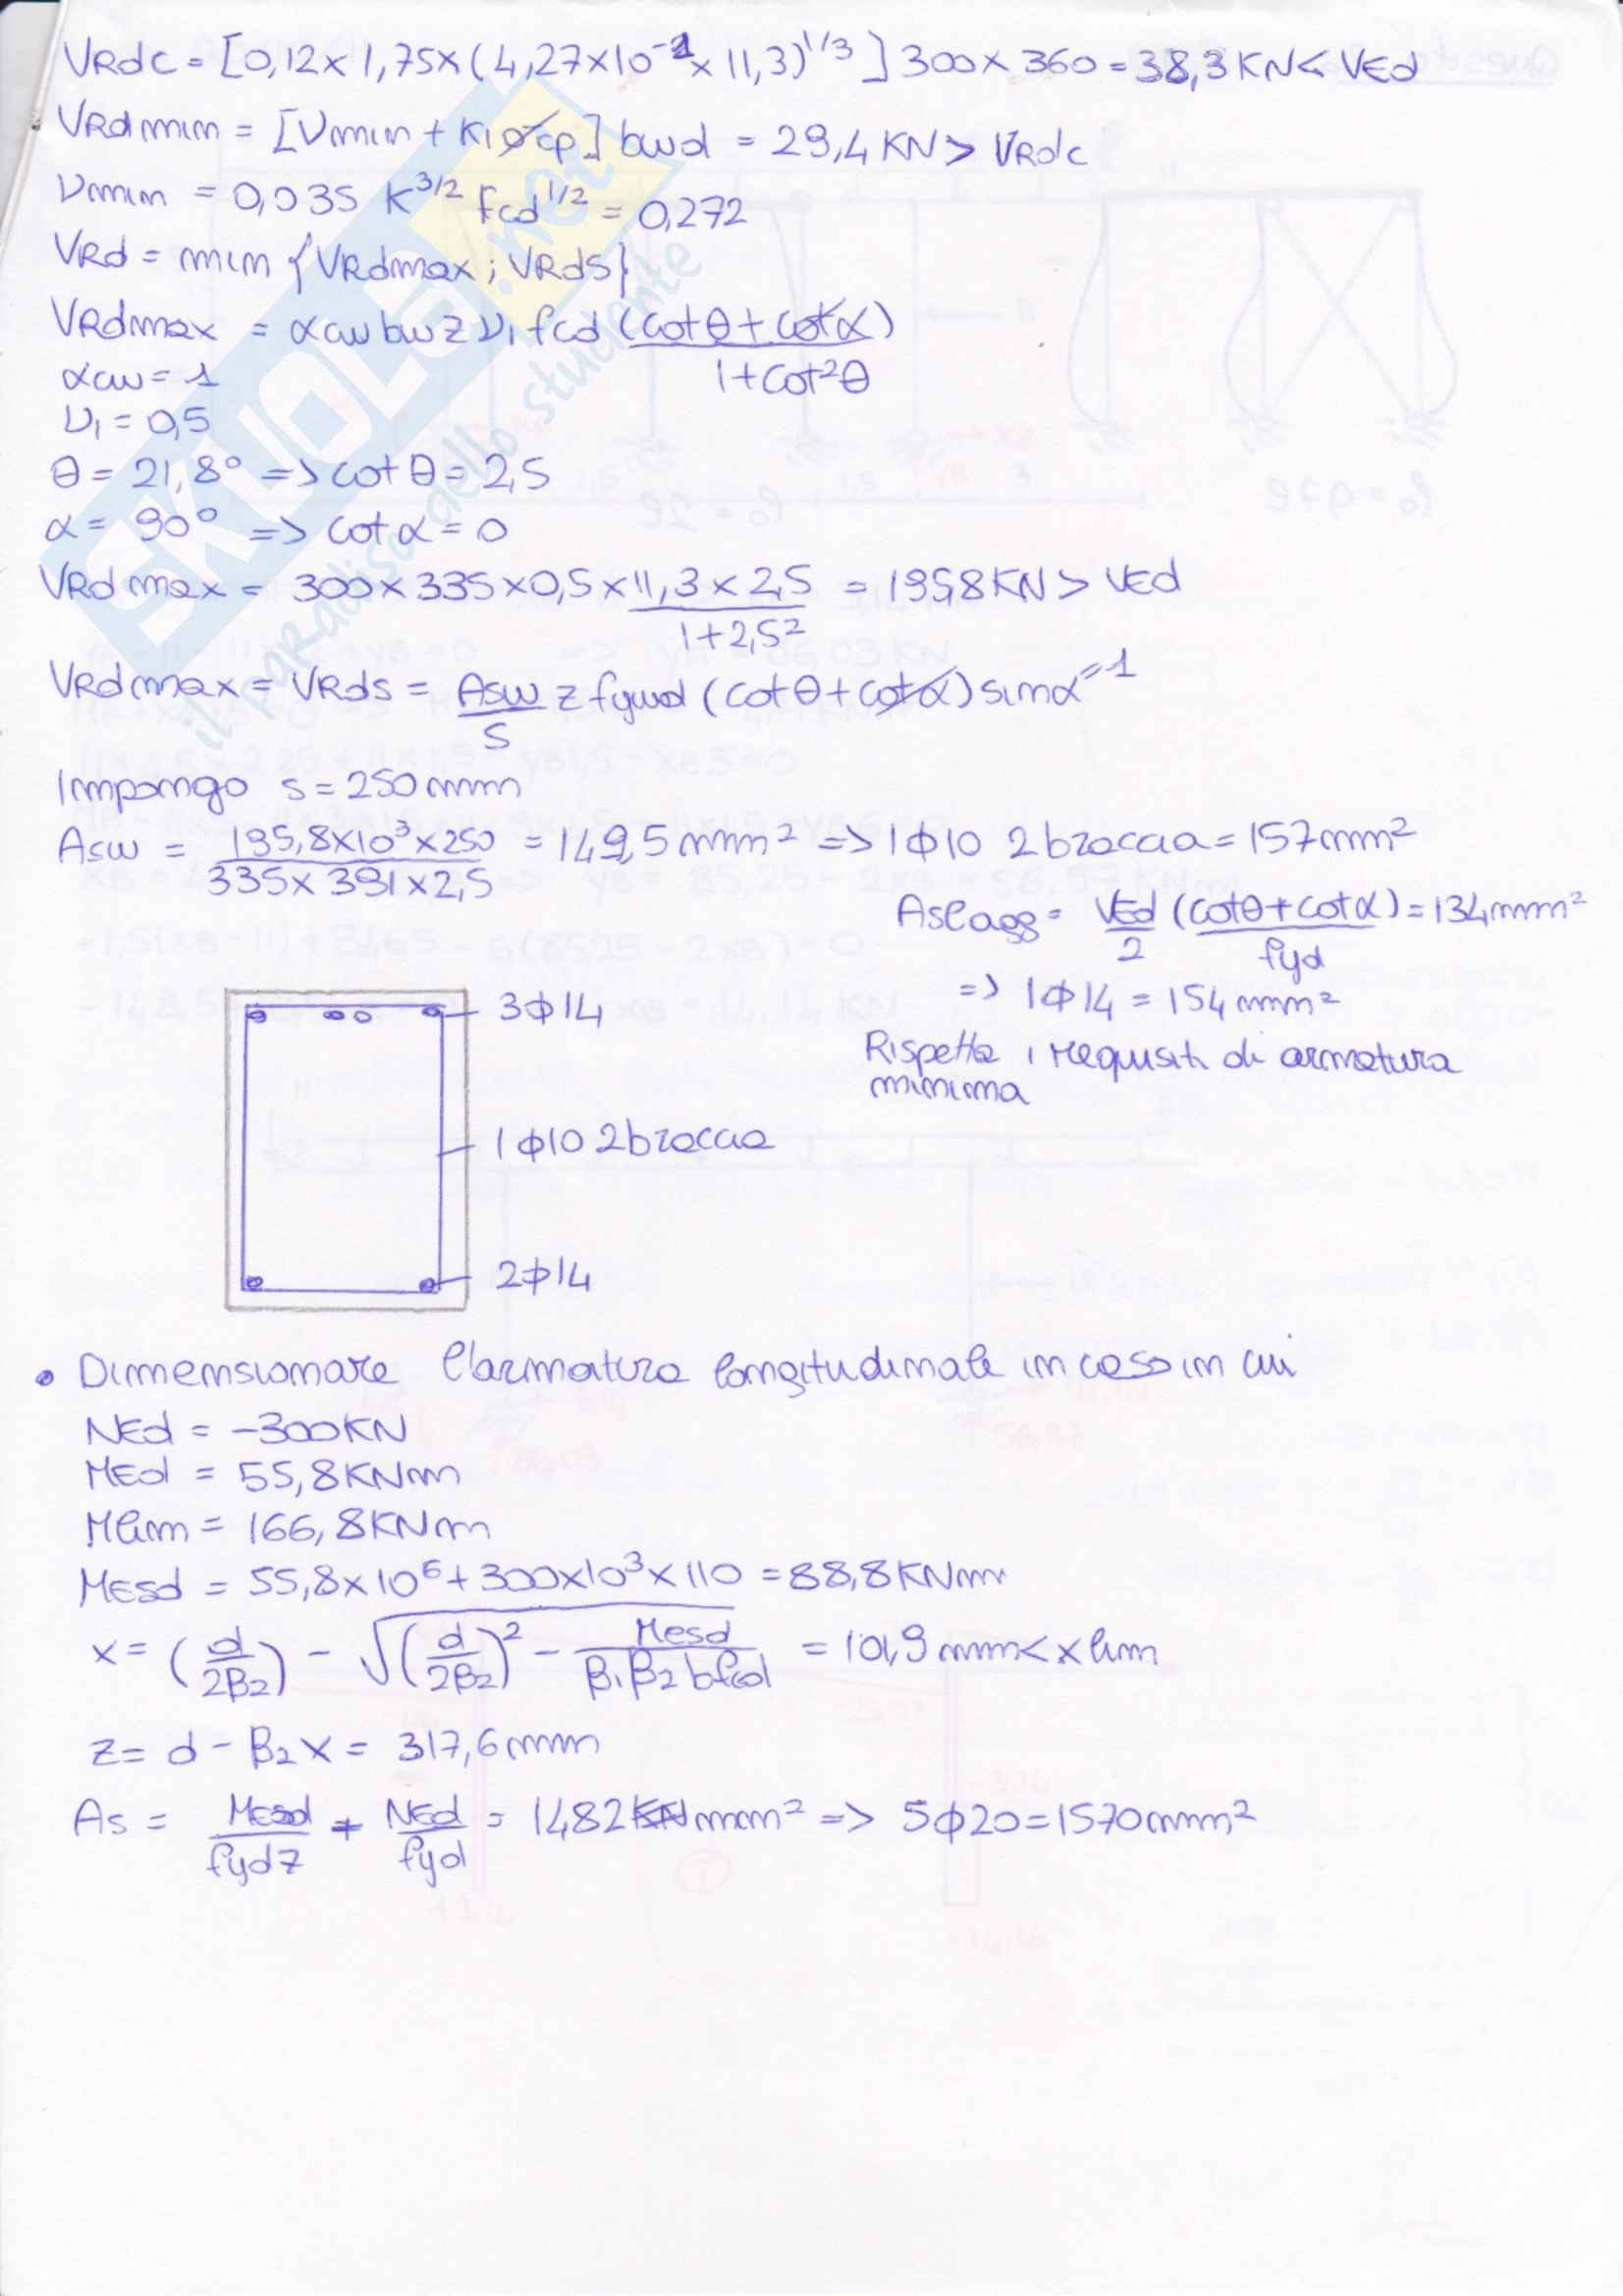 VRdc = [0,12x1,75x(4,27x10⁻¹x11,3)^1/3] 300x360 = 38,3KN < VEd
VRdmim = [Vmim + K1σcp] bwd = 29,4KN > VRdc
νmim = 0,035 K^3/2 fcd^1/2 = 0,272
VRd = mim {VRdmax; VRds}
VRdmax = αcw bw z ν1 fcd (cotθ+cotα)/(1+cot²θ)
αcw = 1
ν1 = 0,5
θ = 21,8° => cotθ = 2,5
α = 90° => cotα = 0
VRdmax = 300x335x0,5x11,3x2,5/(1+2,5²) = 195,8KN > VEd
VRdmax = VRds = Asw/s z fywd (cotθ+cotα) simα =1
Impomgo s = 250mm
Asw = 195,8x10³x250/(335x391x2,5) = 149,5mm² => 1φ10 2braccia = 157mm²
Aslagg = VEd/2 (cotθ+cotα)/fyd = 134mm²
=> 1φ14 = 154mm²
Rispetta i requisiti di armatura
minima
3φ14
1φ10 2braccia
2φ14
• Dimemsiomare l'armatura lomgitudimale im caso im cui
NEd = -300KN
MEd = 55,8KNm
Mlim = 166,8KNm
MEsd = 55,8x10⁶+300x10³x110 = 88,8KNm
x = (d/2β2) - √((d/2β2)² - Mesd/(β1β2bfcd)) = 101,9mm < xlim
z = d - β2x = 317,6mm
As = MEsd/(fydz) + NEd/fyd = 1482 KN mm² => 5φ20 = 1570mm²
SKUOLA.net
il paradiso dello studente